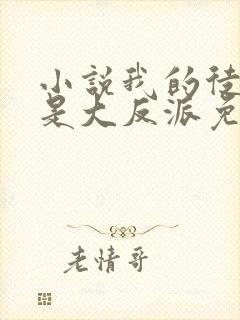 小說我的徒
是大反派免
老情哥